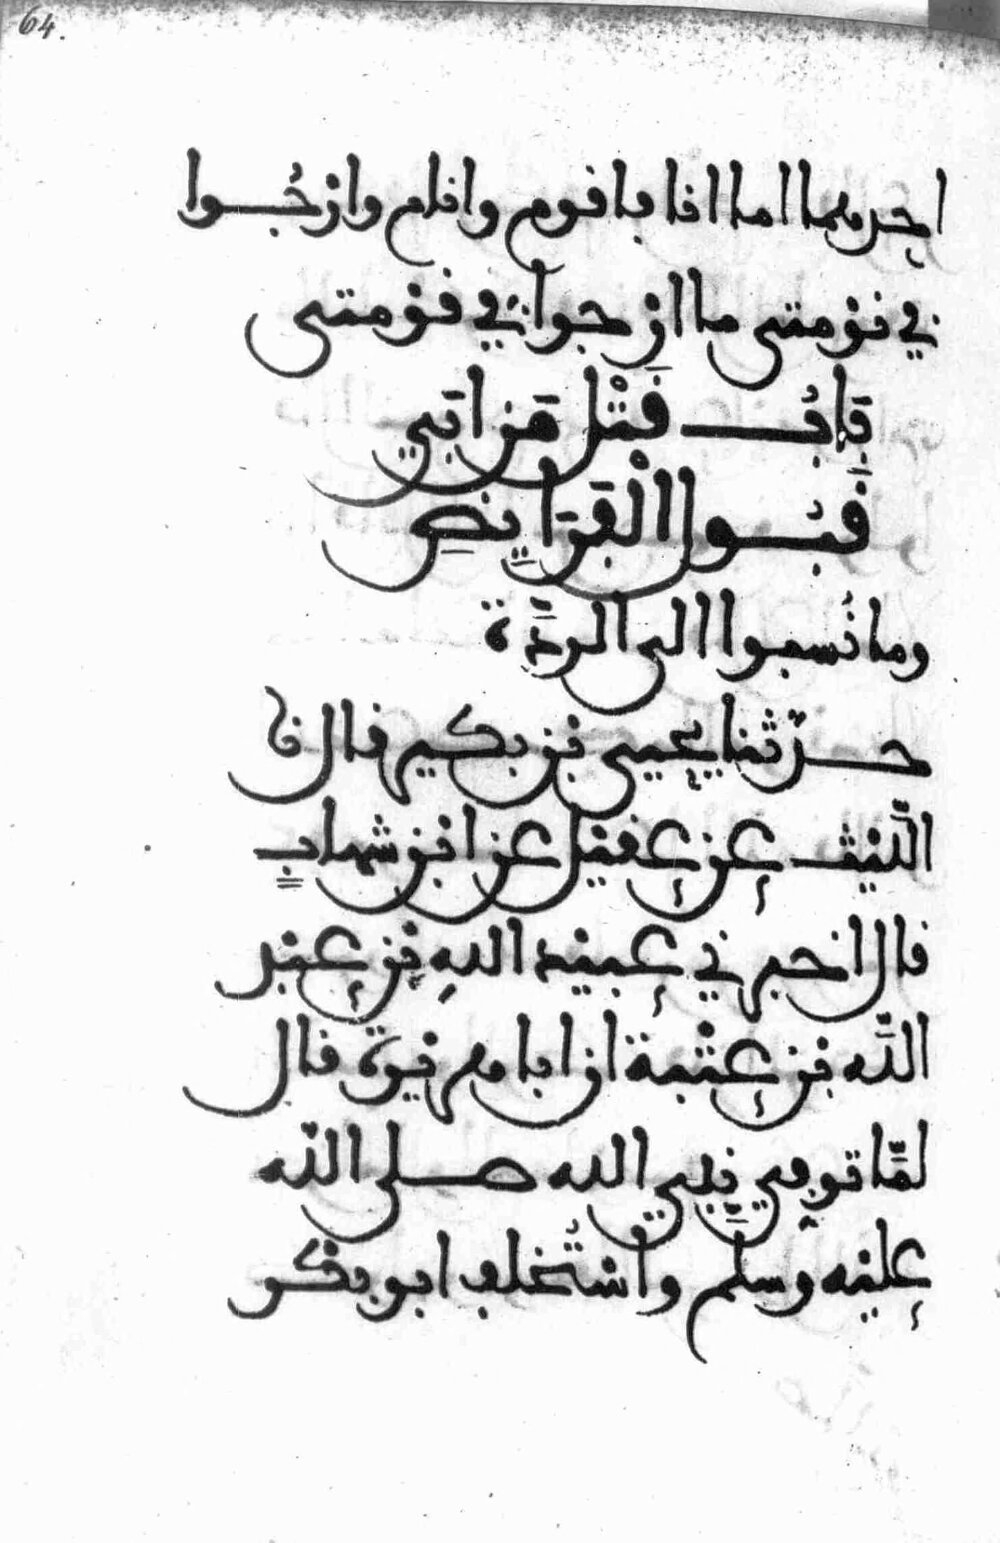 64.
احدهما اما انا فاقوم وانام وارجُوا
في نومتي ما ارجوا في قومتي
بَابُ قَتْل مَن ابَى
قَبُول الْفَرَايِضِ
وما نُسبوا الى الردَّة
حدّثنا يحيى بن بكير قال نا
اللَّيْث عن عقيل عن ابن شهاب
قال اخبرني عبيد اللهِ بن عبد
اللَّه بن عتْبة ان ابا هريرة قال
لمَّا توفي نبي الله صلى اللَّه
عليه وسلم واستُخلف ابو بكر